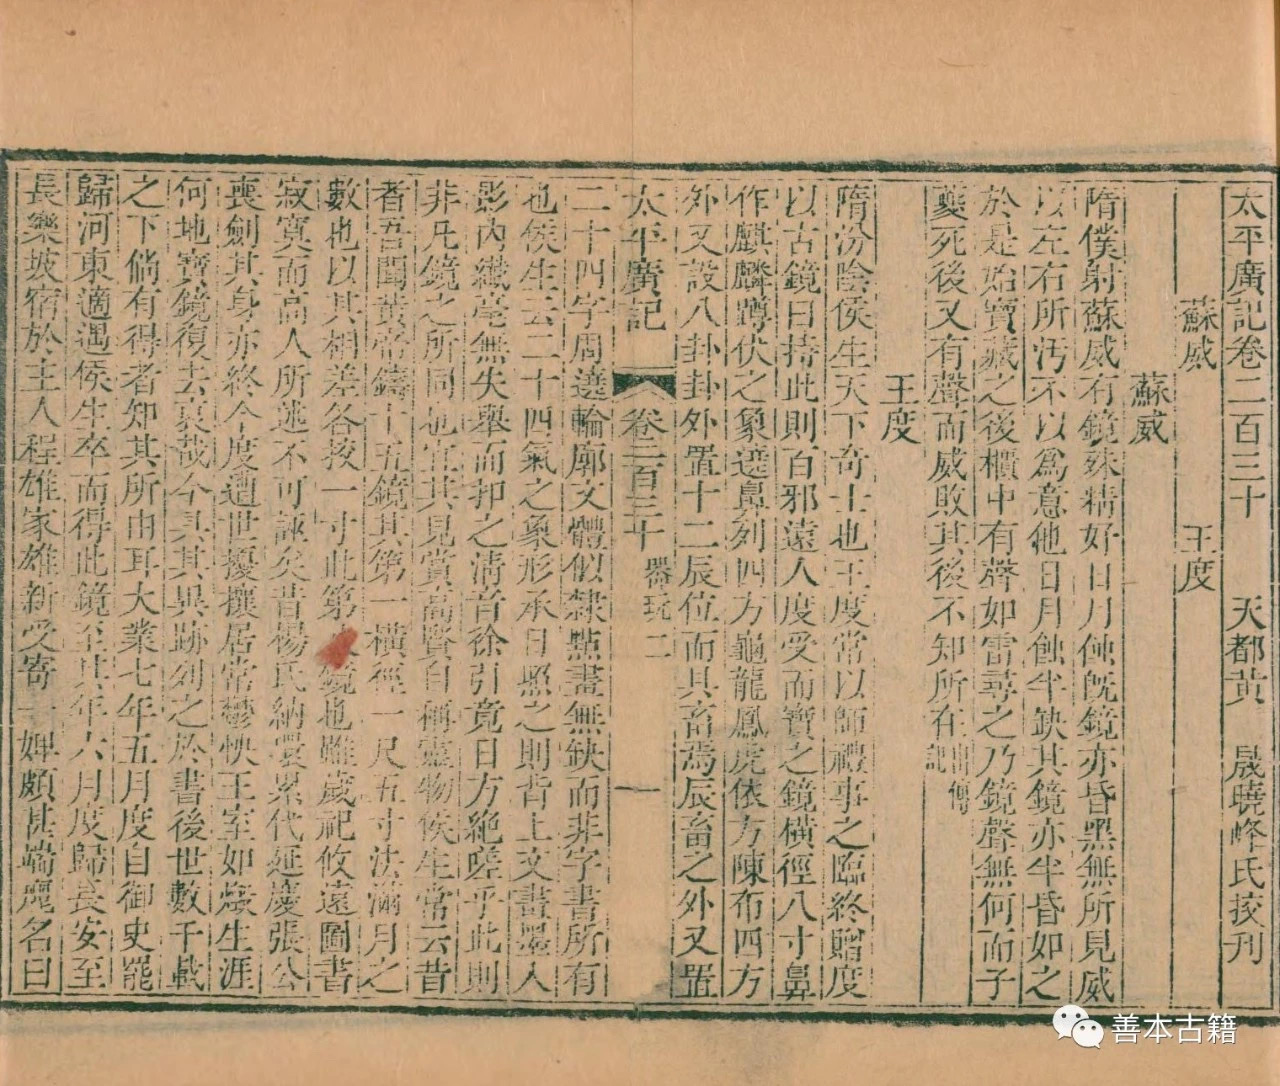 太平廣記卷二百三十 天都黄 晟曉峰氏挍刊
蘇威 王度
蘇威
隋僕射蘇威有鏡殊精好日月蝕旣鏡亦昏黑無所見威
以左右所汚不以爲意他日月蝕半缺其鏡亦半昏如之
於是始寶藏之後櫃中有聲如雷尋之乃鏡聲無何而子
夔死後又有聲而威敗其後不知所在出傳記
王度
隋汾陰侯生天下奇士也王度常以師禮事之臨終贈度
以古鏡曰持此則百邪遠人度受而寶之鏡橫徑八寸鼻
作麒麟蹲伏之象遶鼻列四方龜龍鳳虎依方陳布四方
外又設八卦卦外置十二辰位而具畜焉辰畜之外又置
太平廣記 卷二百三十 器玩二 一
二十四字周遶輪廓文體似隸點畫無缺而非字書所有
也侯生云二十四氣之象形承日照之則背上文畫墨入
影內纖毫無失舉而扣之清音徐引竟日方絶嗟乎此則
非凡鏡之所同也宜其見賞高賢自稱靈物侯生常云昔
者吾聞黄帝鑄十五鏡其第一橫徑一尺五寸法滿月之
數也以其相差各挍一寸此第鏡也雖歲祀攸遠圖書
寂寞而高人所述不可誣矣昔楊氏納環累代延慶張公
喪劍其身亦終今度遭世擾攘居常鬱怏王室如燬生涯
何地寶鏡復去哀哉今具其異跡列之於書後世數千載
之下倘有得者知其所由耳大業七年五月度自御史罷
歸河東適遇侯生卒而得此鏡至其年六月度歸長安至
長樂坡宿於主人程雄家雄新受寄一婢頗甚端麗名曰
善本古籍